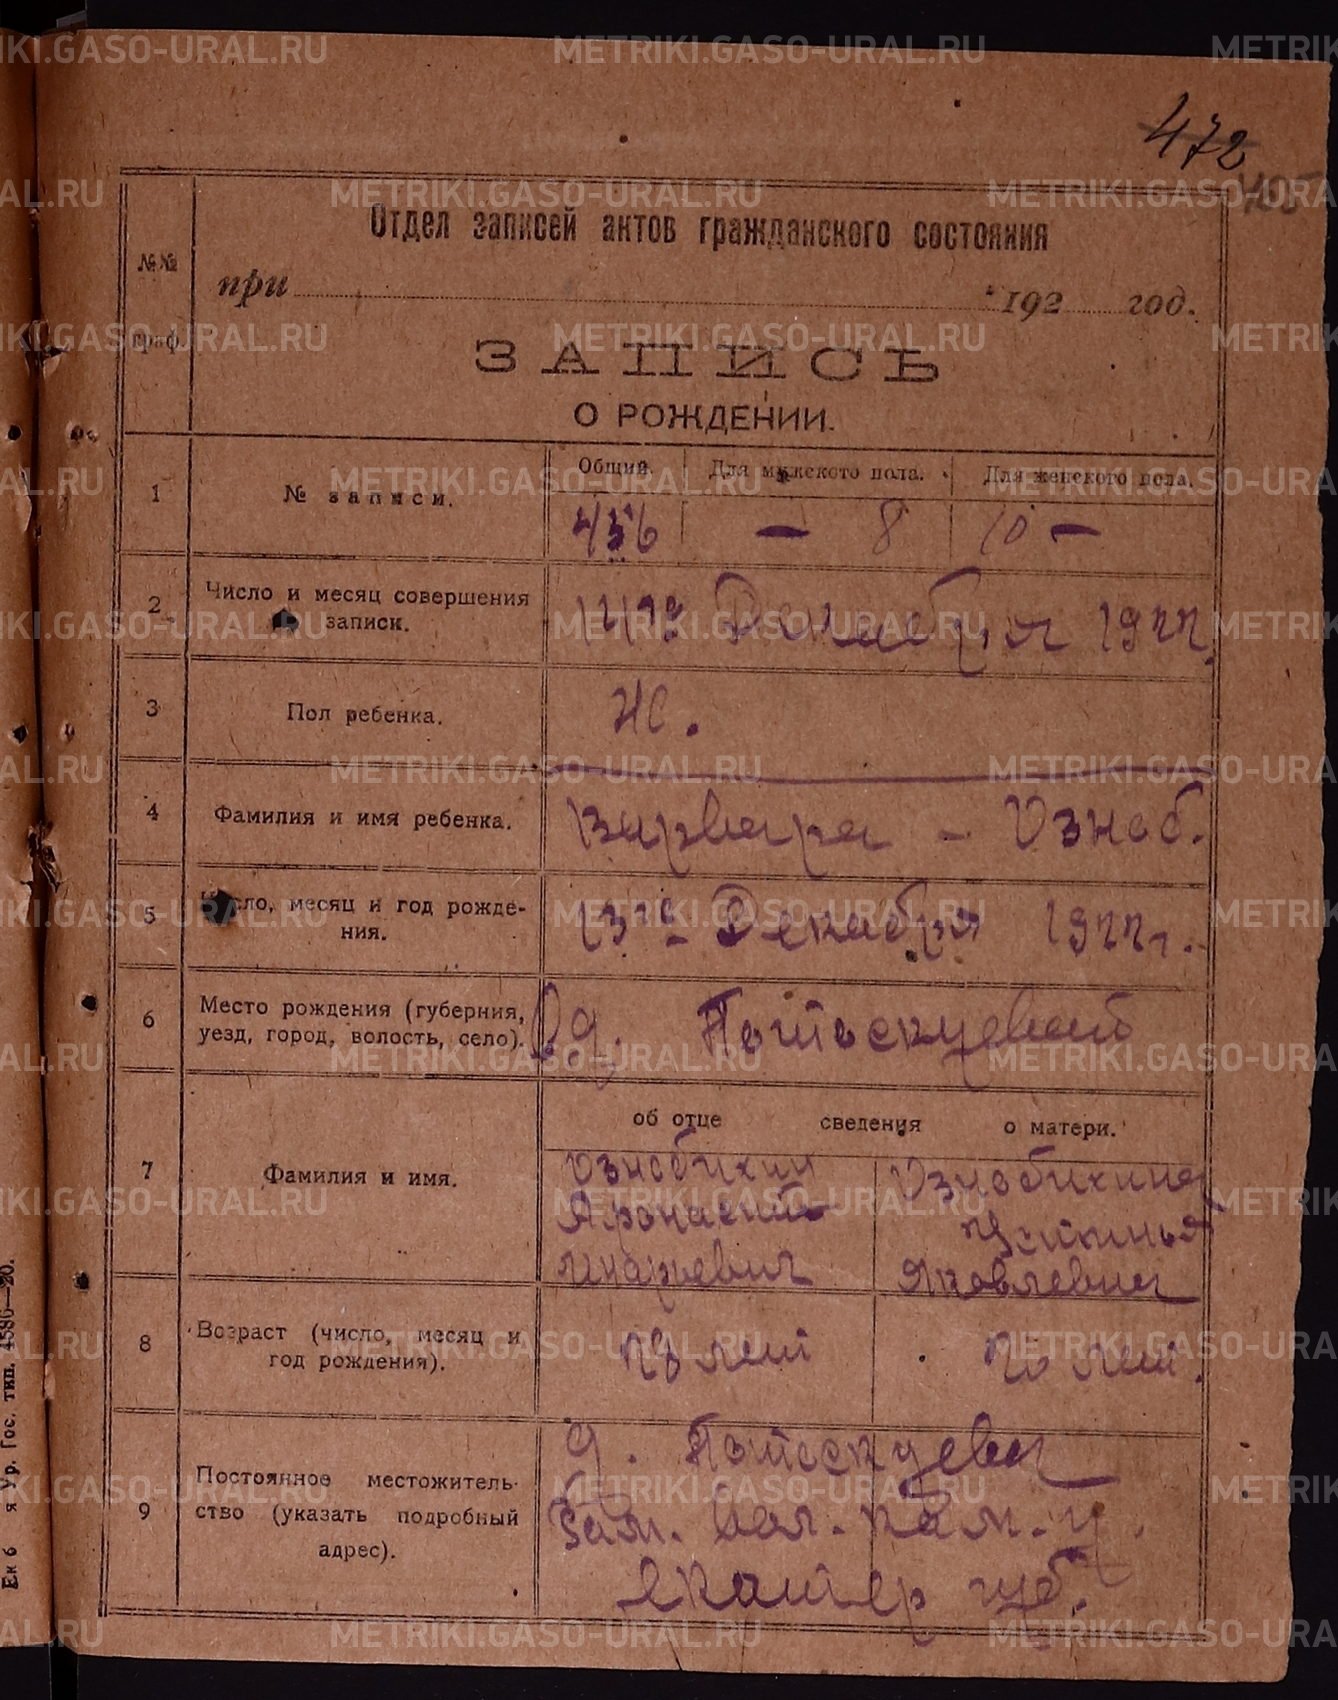 472
Отдел записей актов гражданского состояния
№№ граф.
при 192 год.
ЗАПИСЬ
О РОЖДЕНИИ.
Общий. Для мужского пола. Для женского пола.
1 № записи. 436 — 8 10 —
2 Число и месяц совершения записи. 14го Декабря 1922
3 Пол ребенка. Ж.
4 Фамилия и имя ребенка. Варвара - Озноб.
5 Число, месяц и год рождения. 13го Декабря 1922 г.
6 Место рождения (губерния, уезд, город, волость, село). д.
об отце сведения о матери.
7 Фамилия и имя.
Ознобихин Ознобихина
Афонасий Устинья
Яковлевна
8 Возраст (число, месяц и год рождения). лет лет.
9 Постоянное местожительство (указать подробный адрес).
д.
вол. Кам. у.
Екатер губ.
Ур. Гос. тип. 4586—20.
METRIKI.GASO-URAL.RU